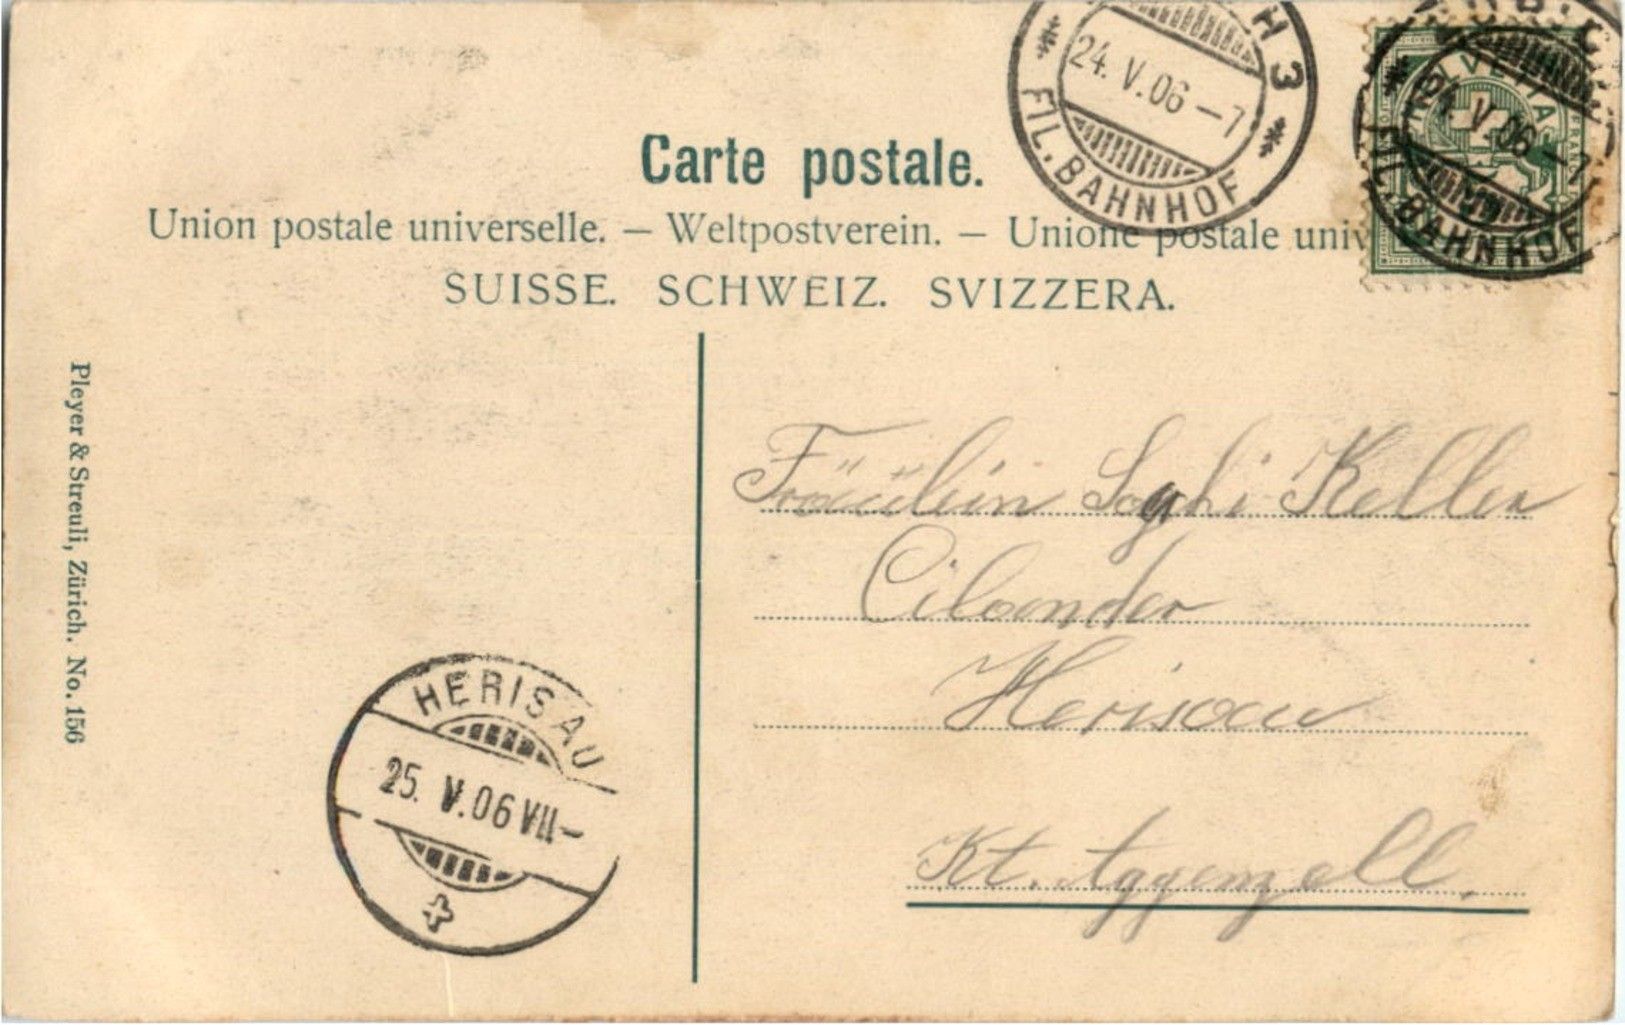 Carte postale.
Union postale universelle. — Weltpostverein. — Unione postale univ
SUISSE. SCHWEIZ. SVIZZERA.
H 3
24. V. 06 – 7
FIL. BAHNHOF
HELVETIA
FRANCO
24. V. 06 – 7
FIL. BAHNHOF
Pleyer & Streuli, Zürich. No. 156
Fräulein Keller
Herisau
Kt. Appenzell.
HERISAU
25. V. 06 VII –